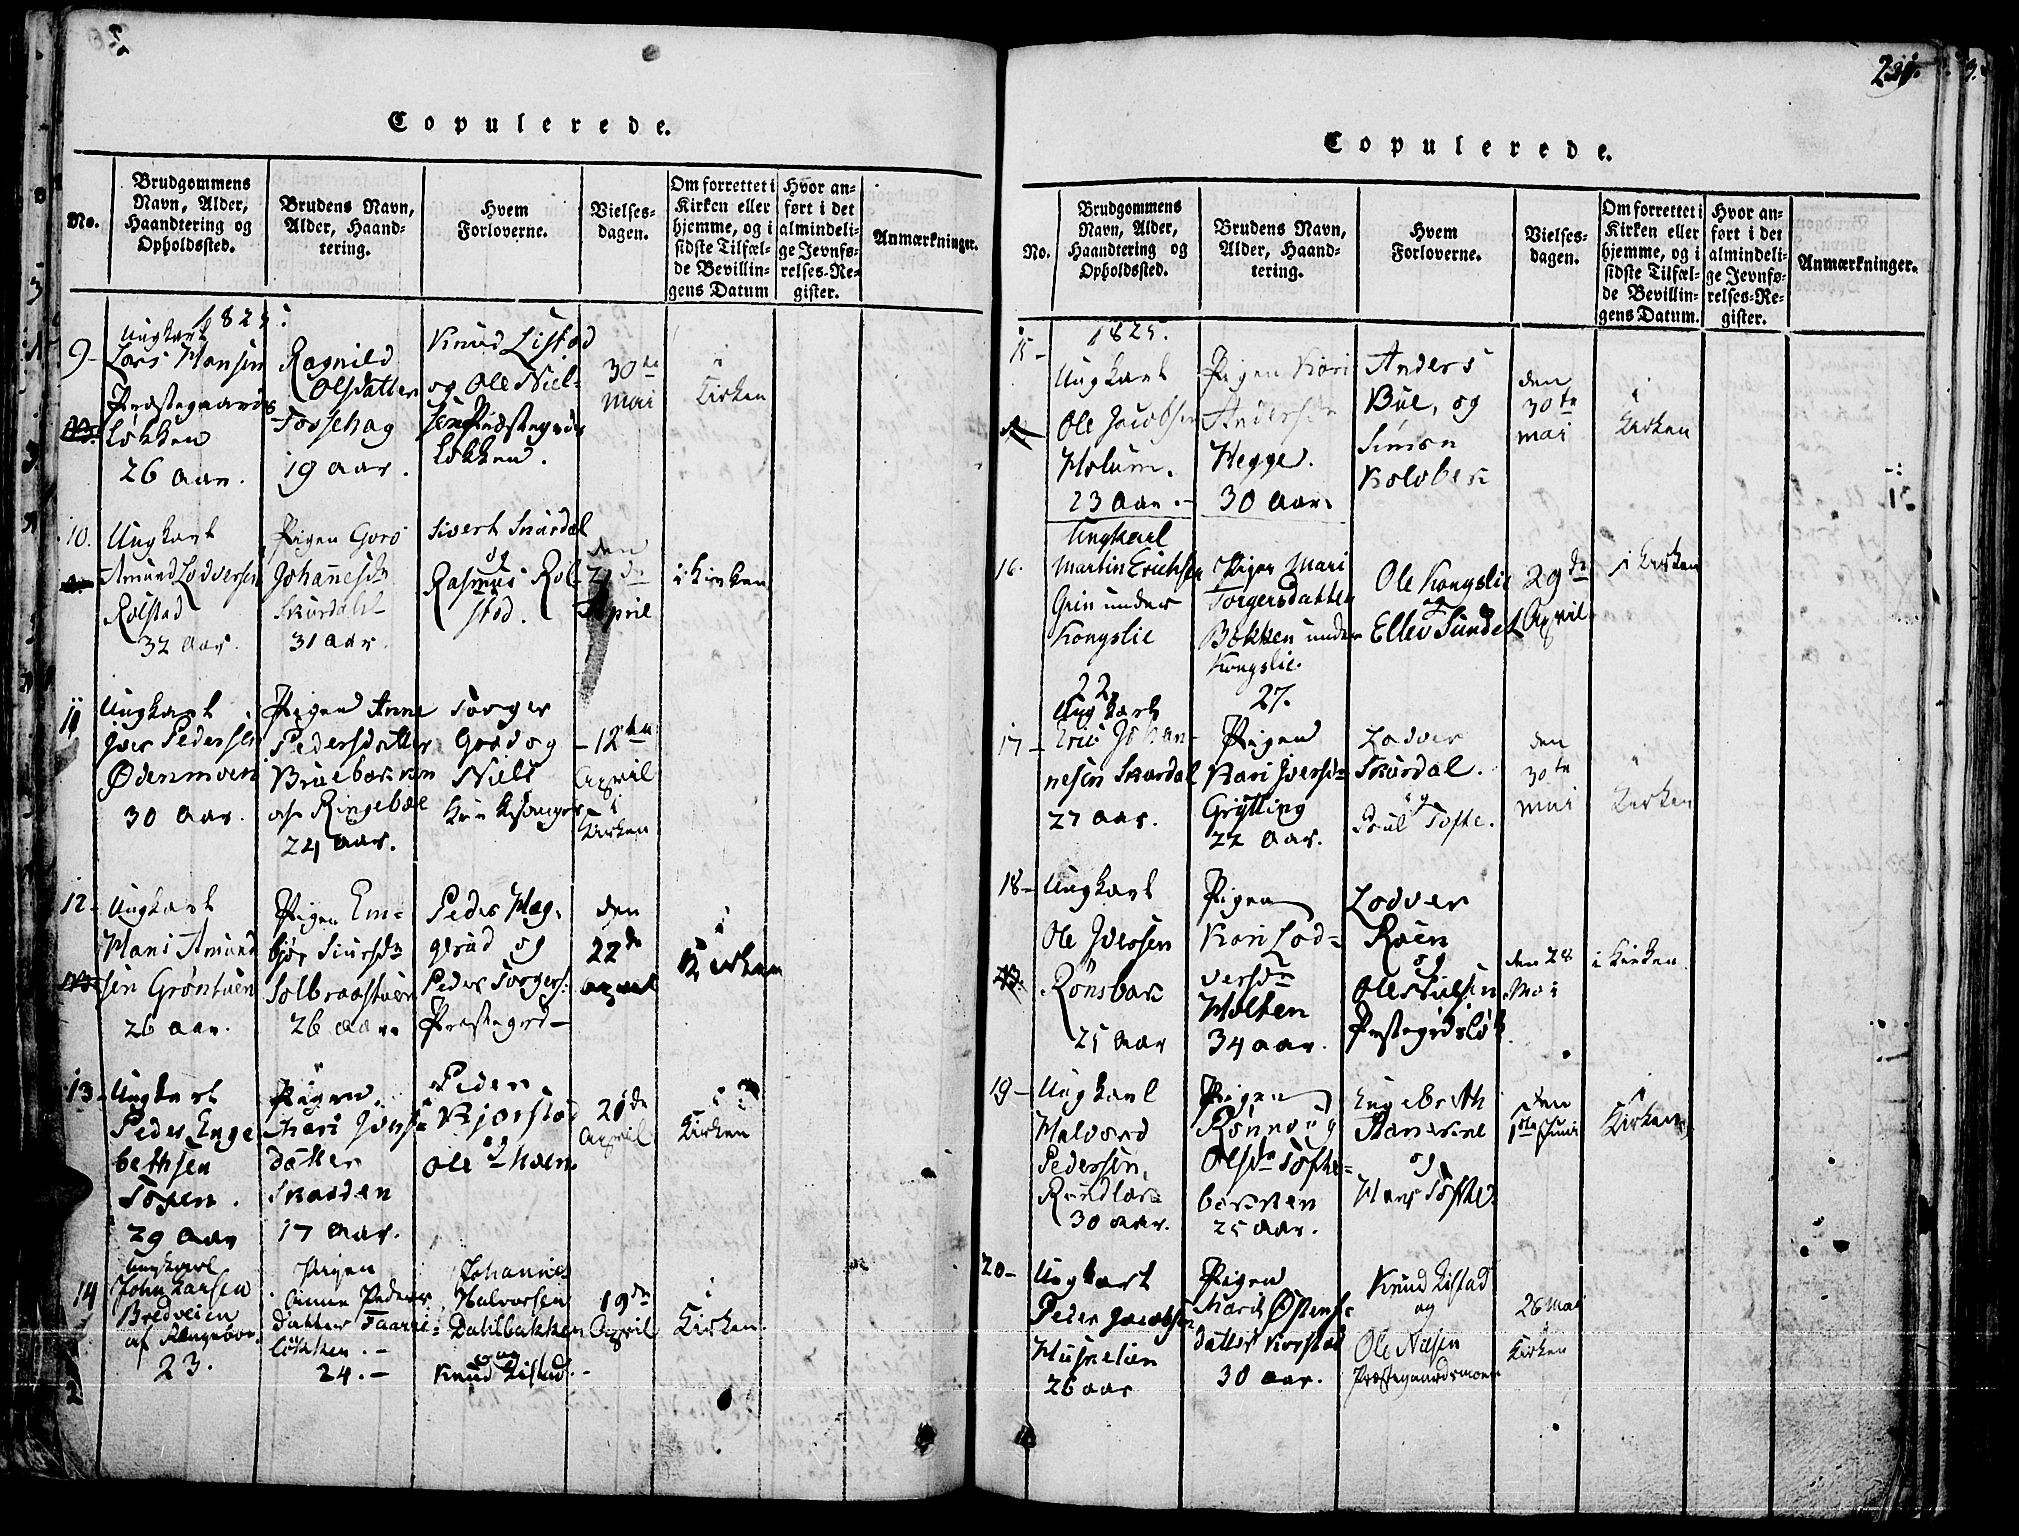 Copulerede.
No.
Brudgommens Navn, Alder, Haandtering og Opholdssted.
Brudens Navn, Alder, Haandtering.
Hvem Forloverne.
Vielsesdagen.
Om forrettet i Kirken eller hjemme, og i sidste Tilfælde Bevillingens Datum
Hvor anført i det almindelige Jevnførelses-Register.
Anmærkninger.
1825.
9-
Ungkarl
Lars Hansen
Præstegaards
Løkken
26 Aar.
Ragnild
Olsdatter
Tossehag
19 aar.
Knud Listad
og Ole Niel-
sen Præstegrds
Løkken.
30te
Mai
i
Kirken
10.
Ungkarl
Amund Lodversen
Rolstad
32 Aar.
Pigen Goro
Johannesdr
Skurdahl
31 Aar.
Sivert Skurdal
og
Rasmus Rol-
stad.
den
April
i Kirken
11
Ungkarl
Iver Pedersen
Ødenmoen
30 Aar.
Pigen Anne
Pedersdatter
Bruebakken
af Ringeboe
24 aar.
Torger
Goed og
Niels
12te
April
i
Kirken
12-
Ungkarl
Hans Amund
sen Grøntuen
26 aar.
Pigen Em-
bjør Siursdr
Solbraastuen
26 aar
Peder Hag-
gerud og
Peder Torgers:
Præstegrd-
den
22de
April
i
Kirken
13-
Ungkarl
Peder Enge
bethsen
Toxen.
29 Aar
Pigen
Kari Ivers
datter
Skarden
17 Aar.
Peder
Kjorstad
og
Ole Hoen
April
i
Kirken
14
Ungkarl
John Larsen
Bredveien
af Ringeboe.
23.
Pigen
Anne Peders
datter Faarre-
løkken.-
24.-
Johannes
Halvorsen
Dahlbakken
og
Knud Listad.-
19de
April
i
Kirken
231.
Copulerede.
No.
Brudgommens Navn, Alder, Haandtering og Opholdssted.
Brudens Navn, Alder, Haandtering.
Hvem Forloverne.
Vielsesdagen.
Om forrettet i Kirken eller hjemme, og i sidste Tilfælde Bevillingens Datum.
Hvor anført i det almindelige Jevnførelses-Register.
Anmærkninger.
1825.
15-
Ungkarl
Ole Jacobsen
Holum.
23 Aar.-
Pigen Kari
Andersdr
Hegge.
30 Aar.
Anders
Bue, og
Simen
Kolobek
den
30te
Mai
i
Kirken
16.
Ungkarl
Martin Erichsen
Grin under
Kongslie
22
Pigen Mari
Torgersdatter
Bækken under
Kongslie.
27.
Ole Kongslie
og
Ellev Sundet
29de
April
i Kirken
17-
Ungkarl
Eric Johan-
nesen Skurdal
27 aar.
Pigen
Kari Iversdr
Grytting
22 Aar.
Lodver
Skurdal.
og
Poul Tofte.
den
30te
Mai
i
Kirken
18-
Ungkarl
Ole Iversen
Rønsbak
25 Aar
Pigen
Kari Lod-
versdr
Holten
34 aar.
Lodver
Roen
og
Ole Nielsen
Præstegrdsløk
den 28
Mai
i Kirken
19-
Ungkarl
Halvord
Pedersen
Rundlok
30 aar.
Pigen
Rønnoug
Olsdr Tofte-
bakken
25 aar.
Engebreth
og
Hans Tofte
den
1ste Juni
i
Kirken
20-
Ungkarl
Peder Jacobsen
Huskelien
26 aar
Pigen
Marit Østens-
datter Korstad
30 aar.
Knud Listad
og
Ole Nilsen
Præstegaardsmoen
28 Mai
i
Kirken